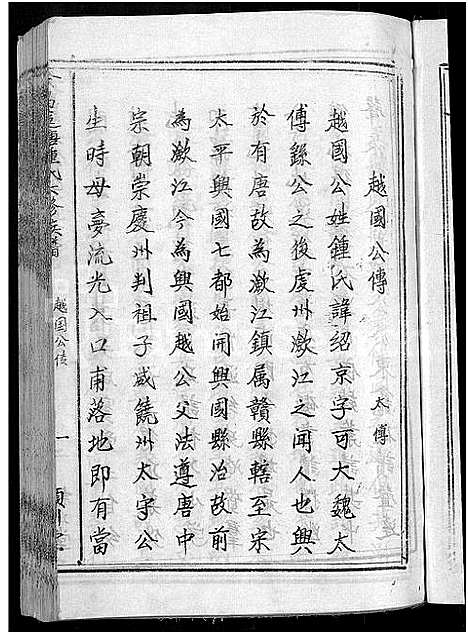 越國公傳
太傅
越國公姓鍾氏諱紹京字可大魏太
傅繇公之後虔州潋江之聞人也興
於有唐故為潋江鎮属贛縣轄至宋
太平興國七都始開興國縣治故前
為潋江今為興國越公父法遵唐中
宗朝崇慶州判祖子威饒州太守公
生時母夣流光入口甫落地即有當
越国公传
一